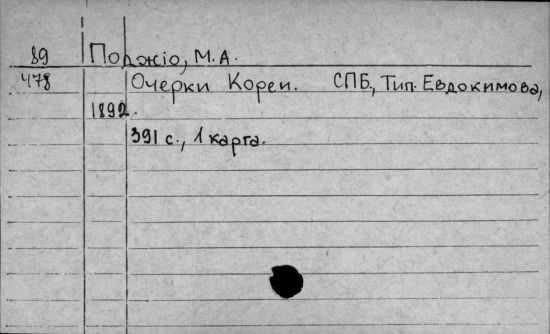 89 Поджіо, М.А.
478 Очерки Кореи. СПБ, Тип. Евдокимова,
1892.
391 с., 1 карта.